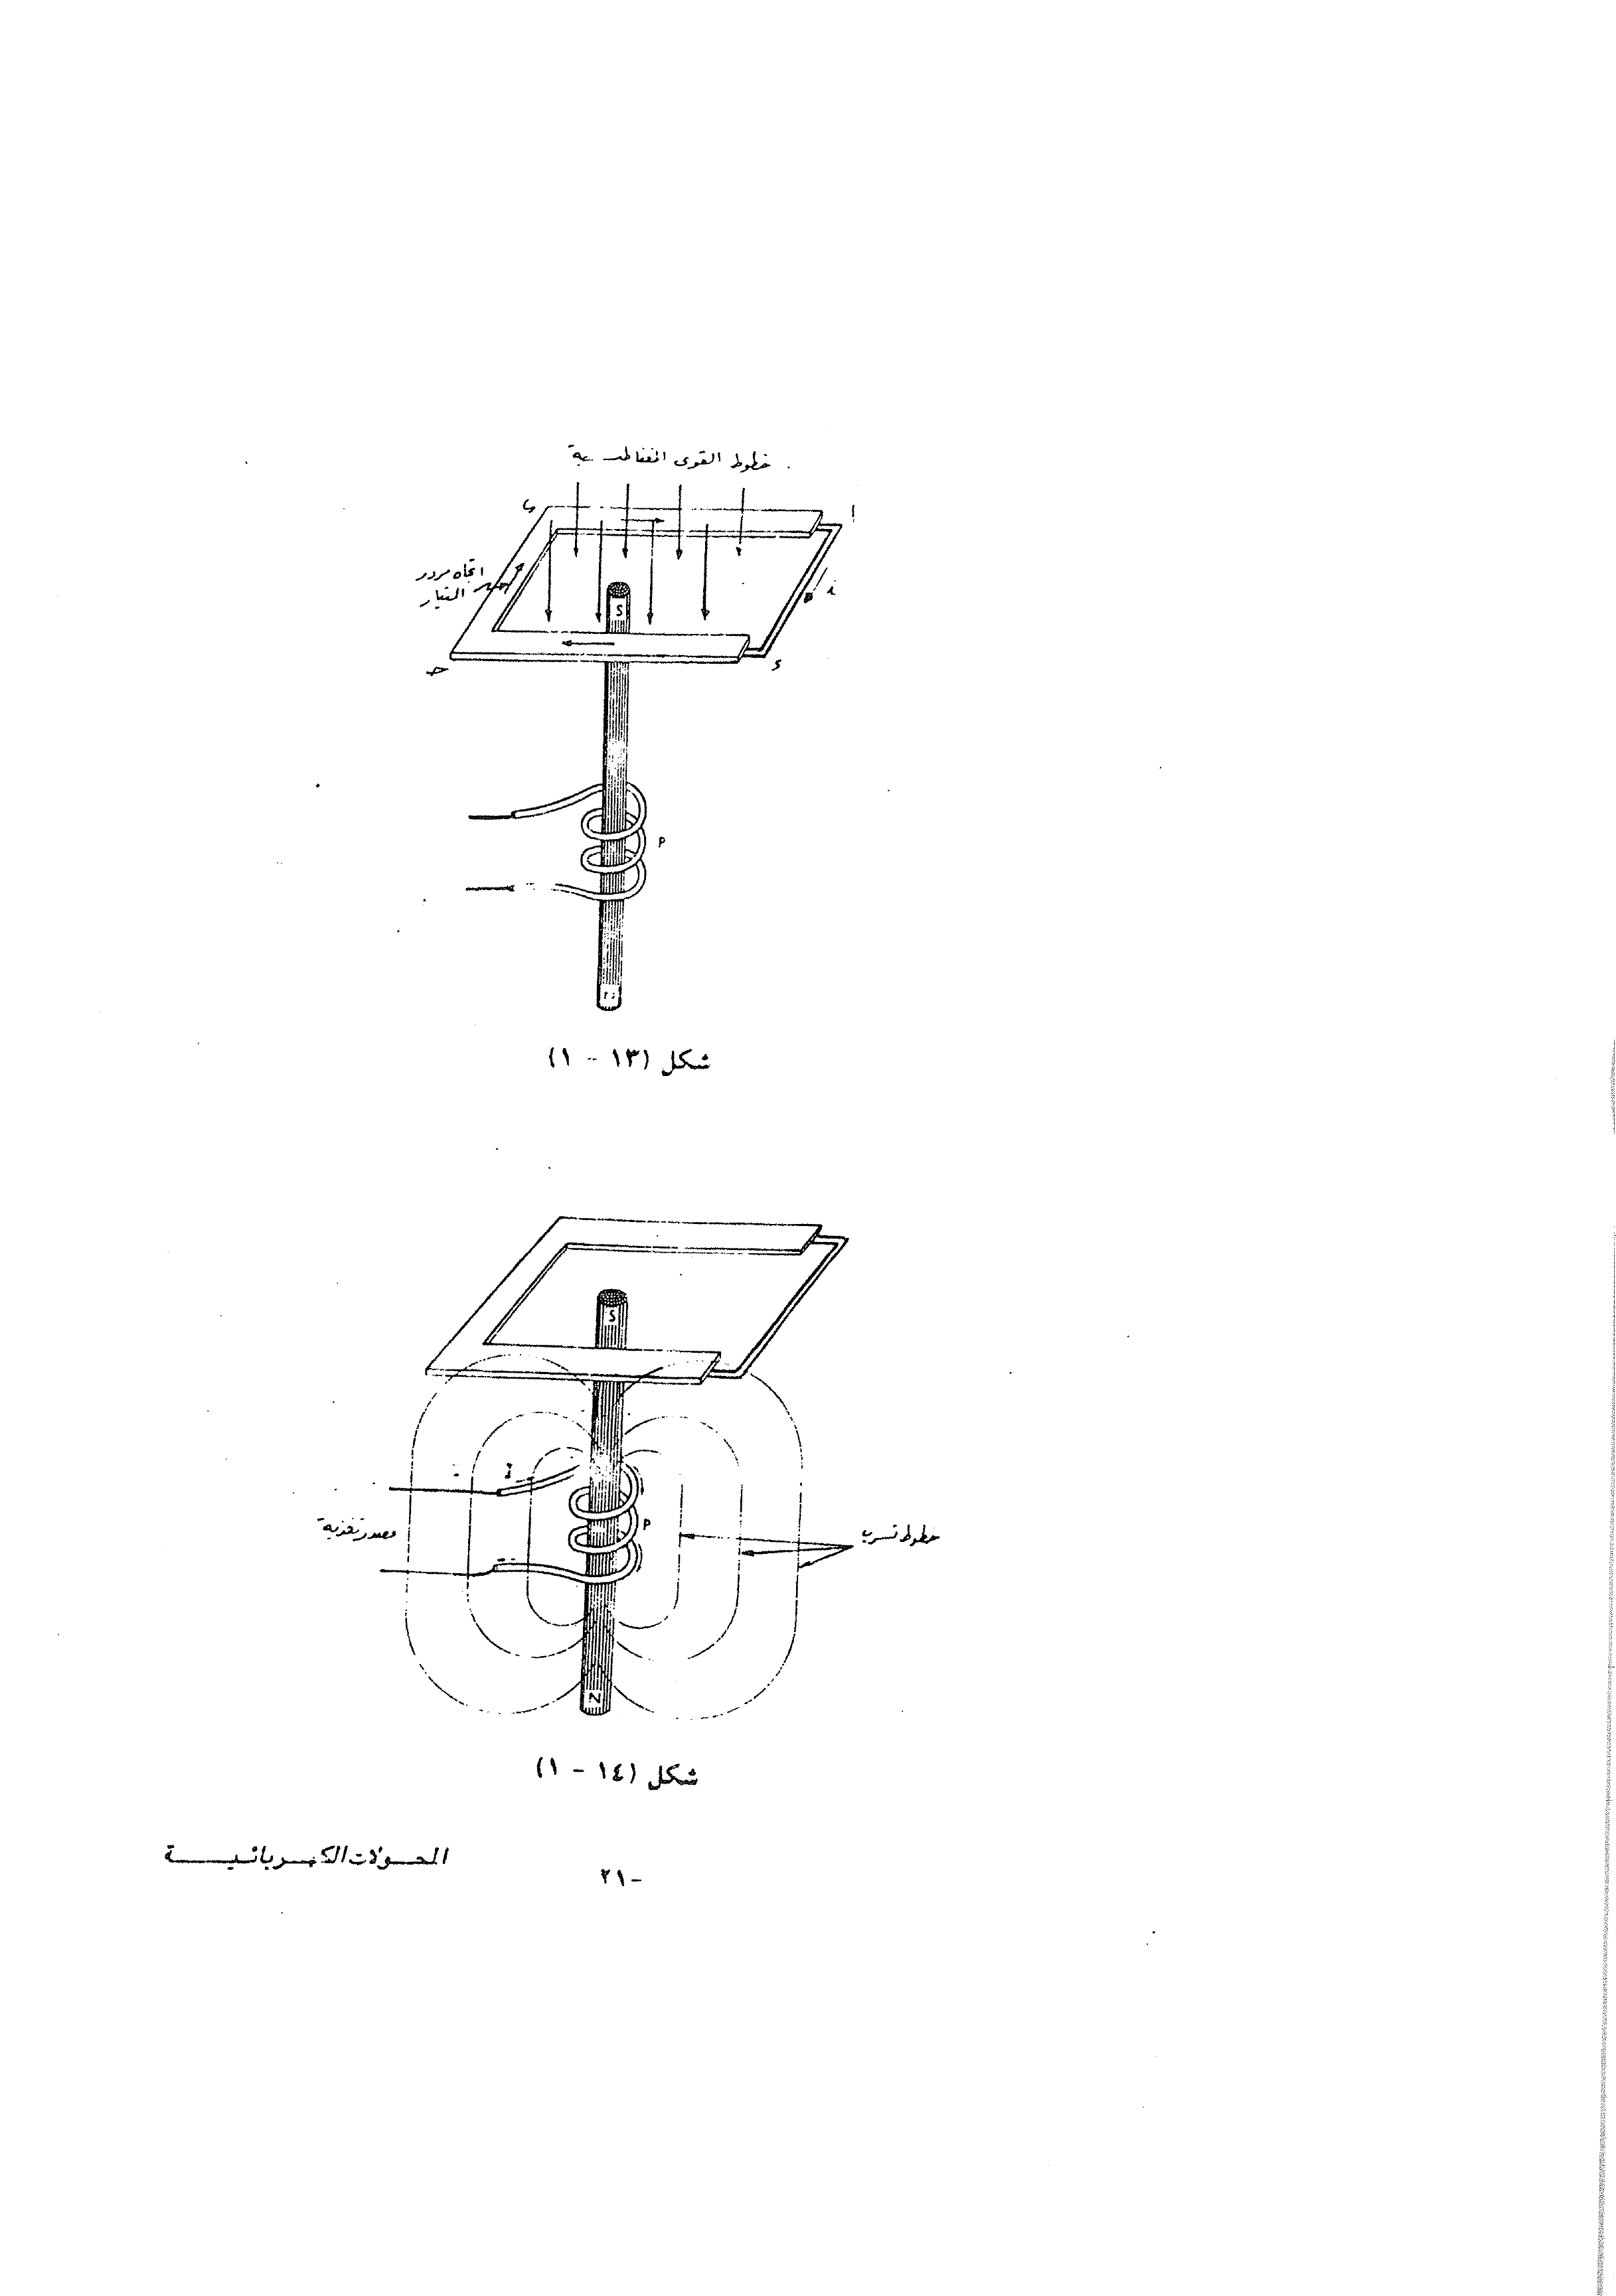 خطوط القوى المغناطيسية
ب
ا
اتجاه مرور
التيار
i
S
حـ
د
P
شكل (١٣ - ١)
S
I
P
مصدر تغذية
خطوط تسرب
N
شكل (١٤ - ١)
المحولات الكهربائية
٢١-